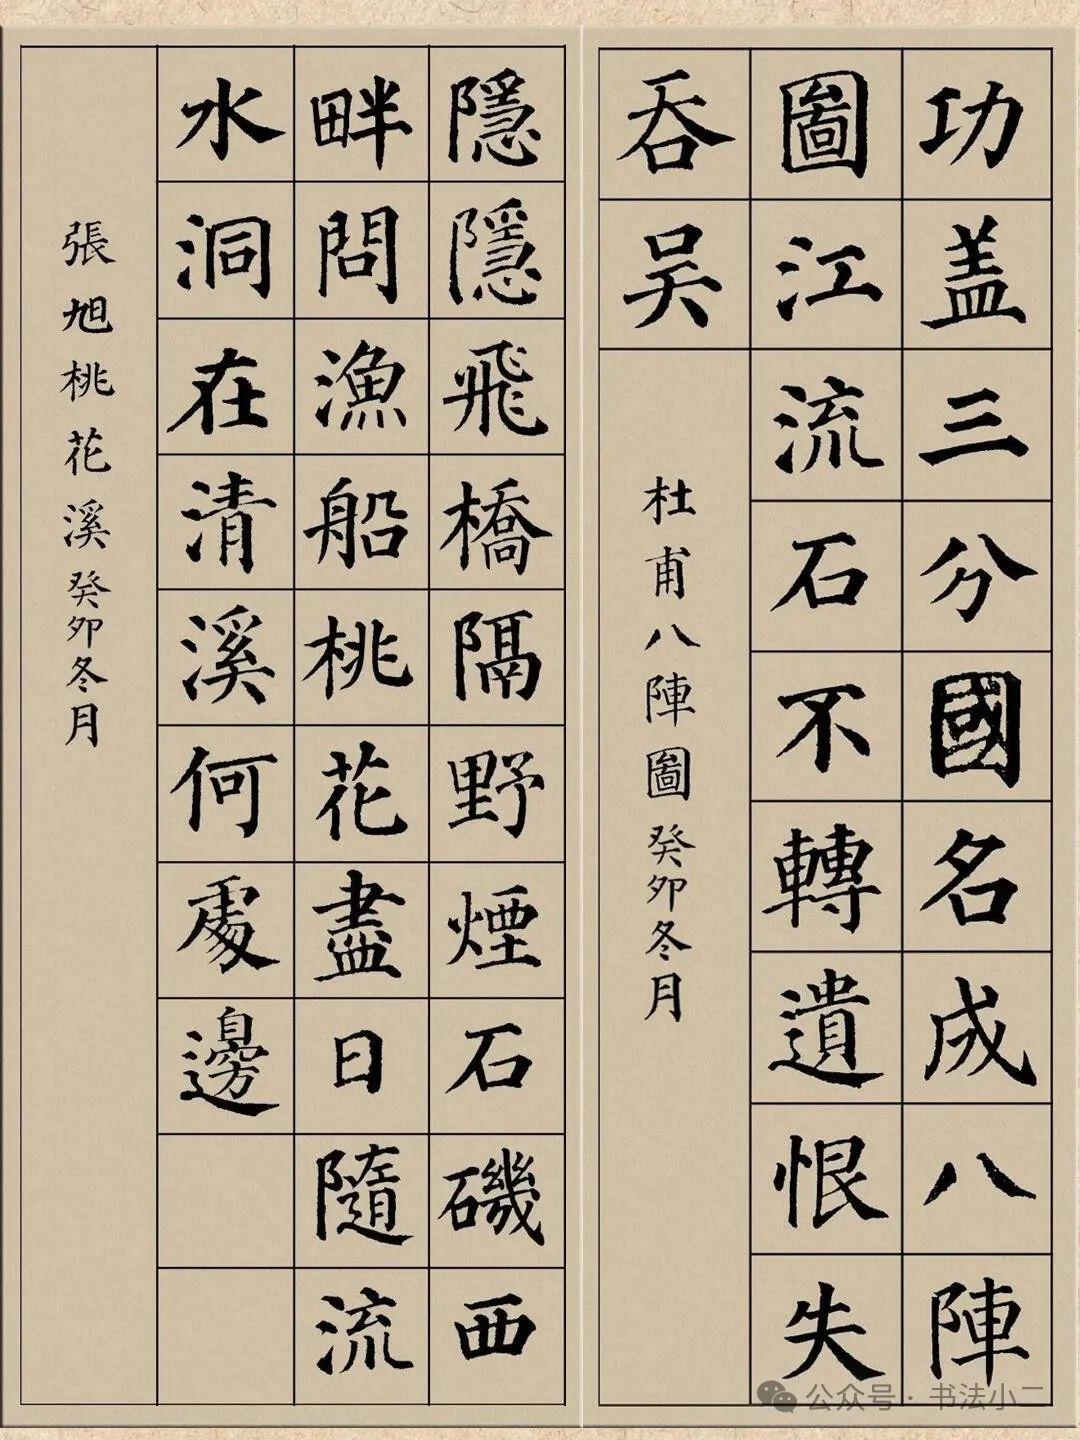 功盖三分國名成八陣
圖江流石不轉遺恨失
吞吴
杜甫八陣圖癸卯冬月
隱隱飛橋隔野煙石磯西
畔問漁船桃花盡日隨流
水洞在清溪何處邊
張旭桃花溪癸卯冬月
公众号·书法小二